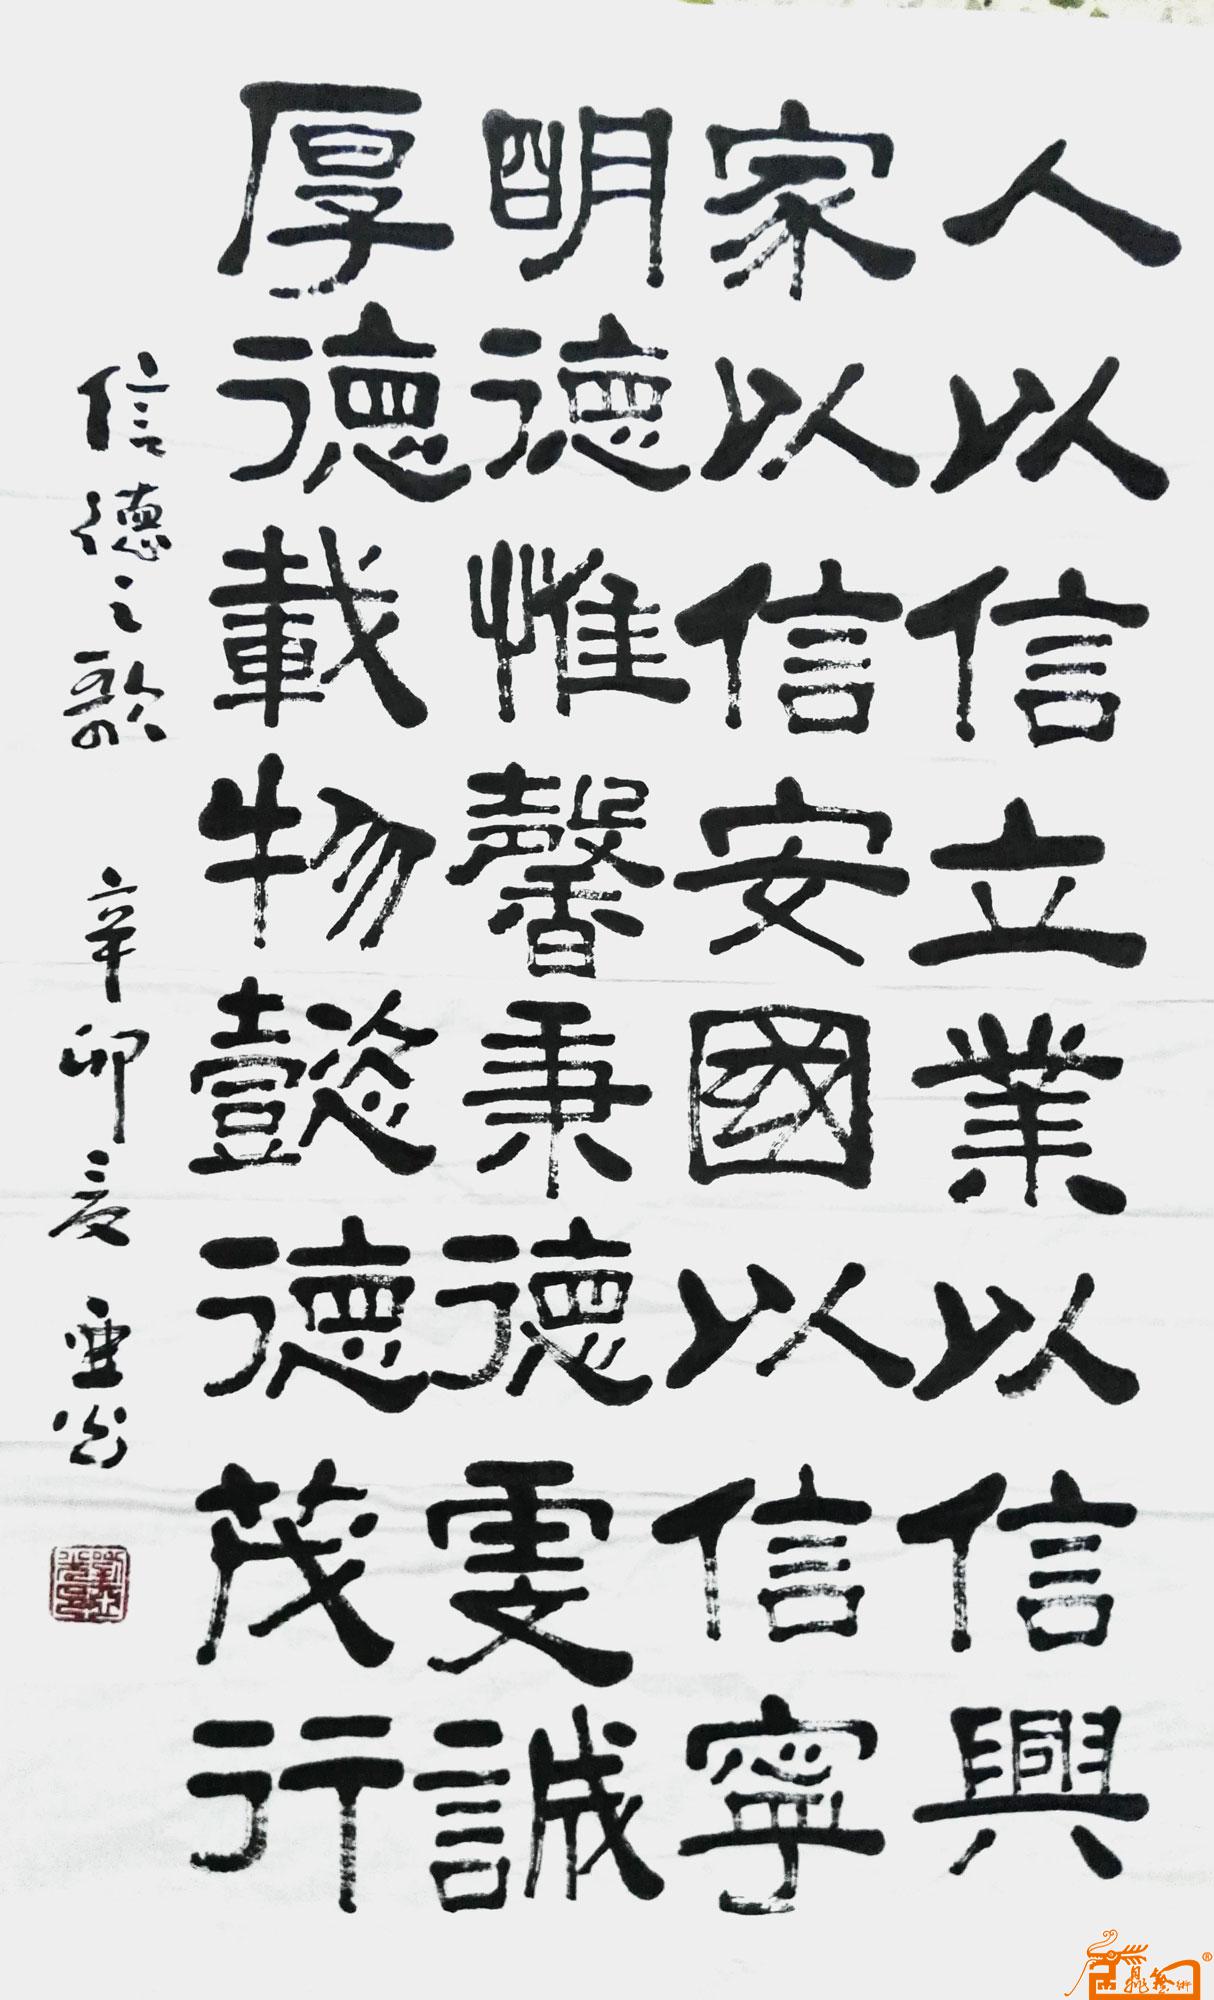 人以信立業以信興
家以信安國以信寧
明德惟馨秉德誠
厚德載物懿德茂行
信德之歌 辛卯夏